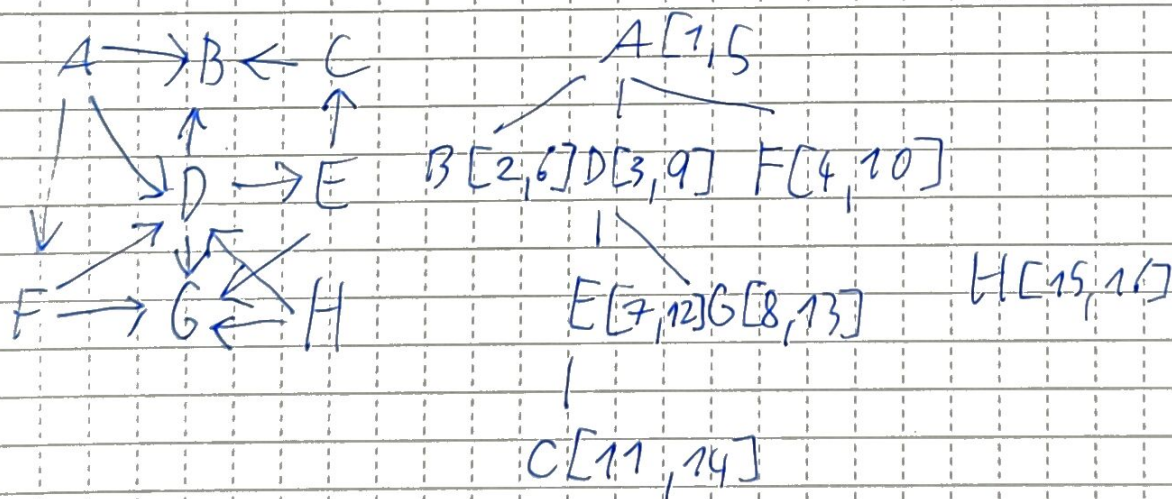 A → B ← C
D → E
F → G ← H
A[1,5
B[2,6] D[3,9] F[4,10]
E[7,12] G[8,13]
H[15,16]
C[11,14]